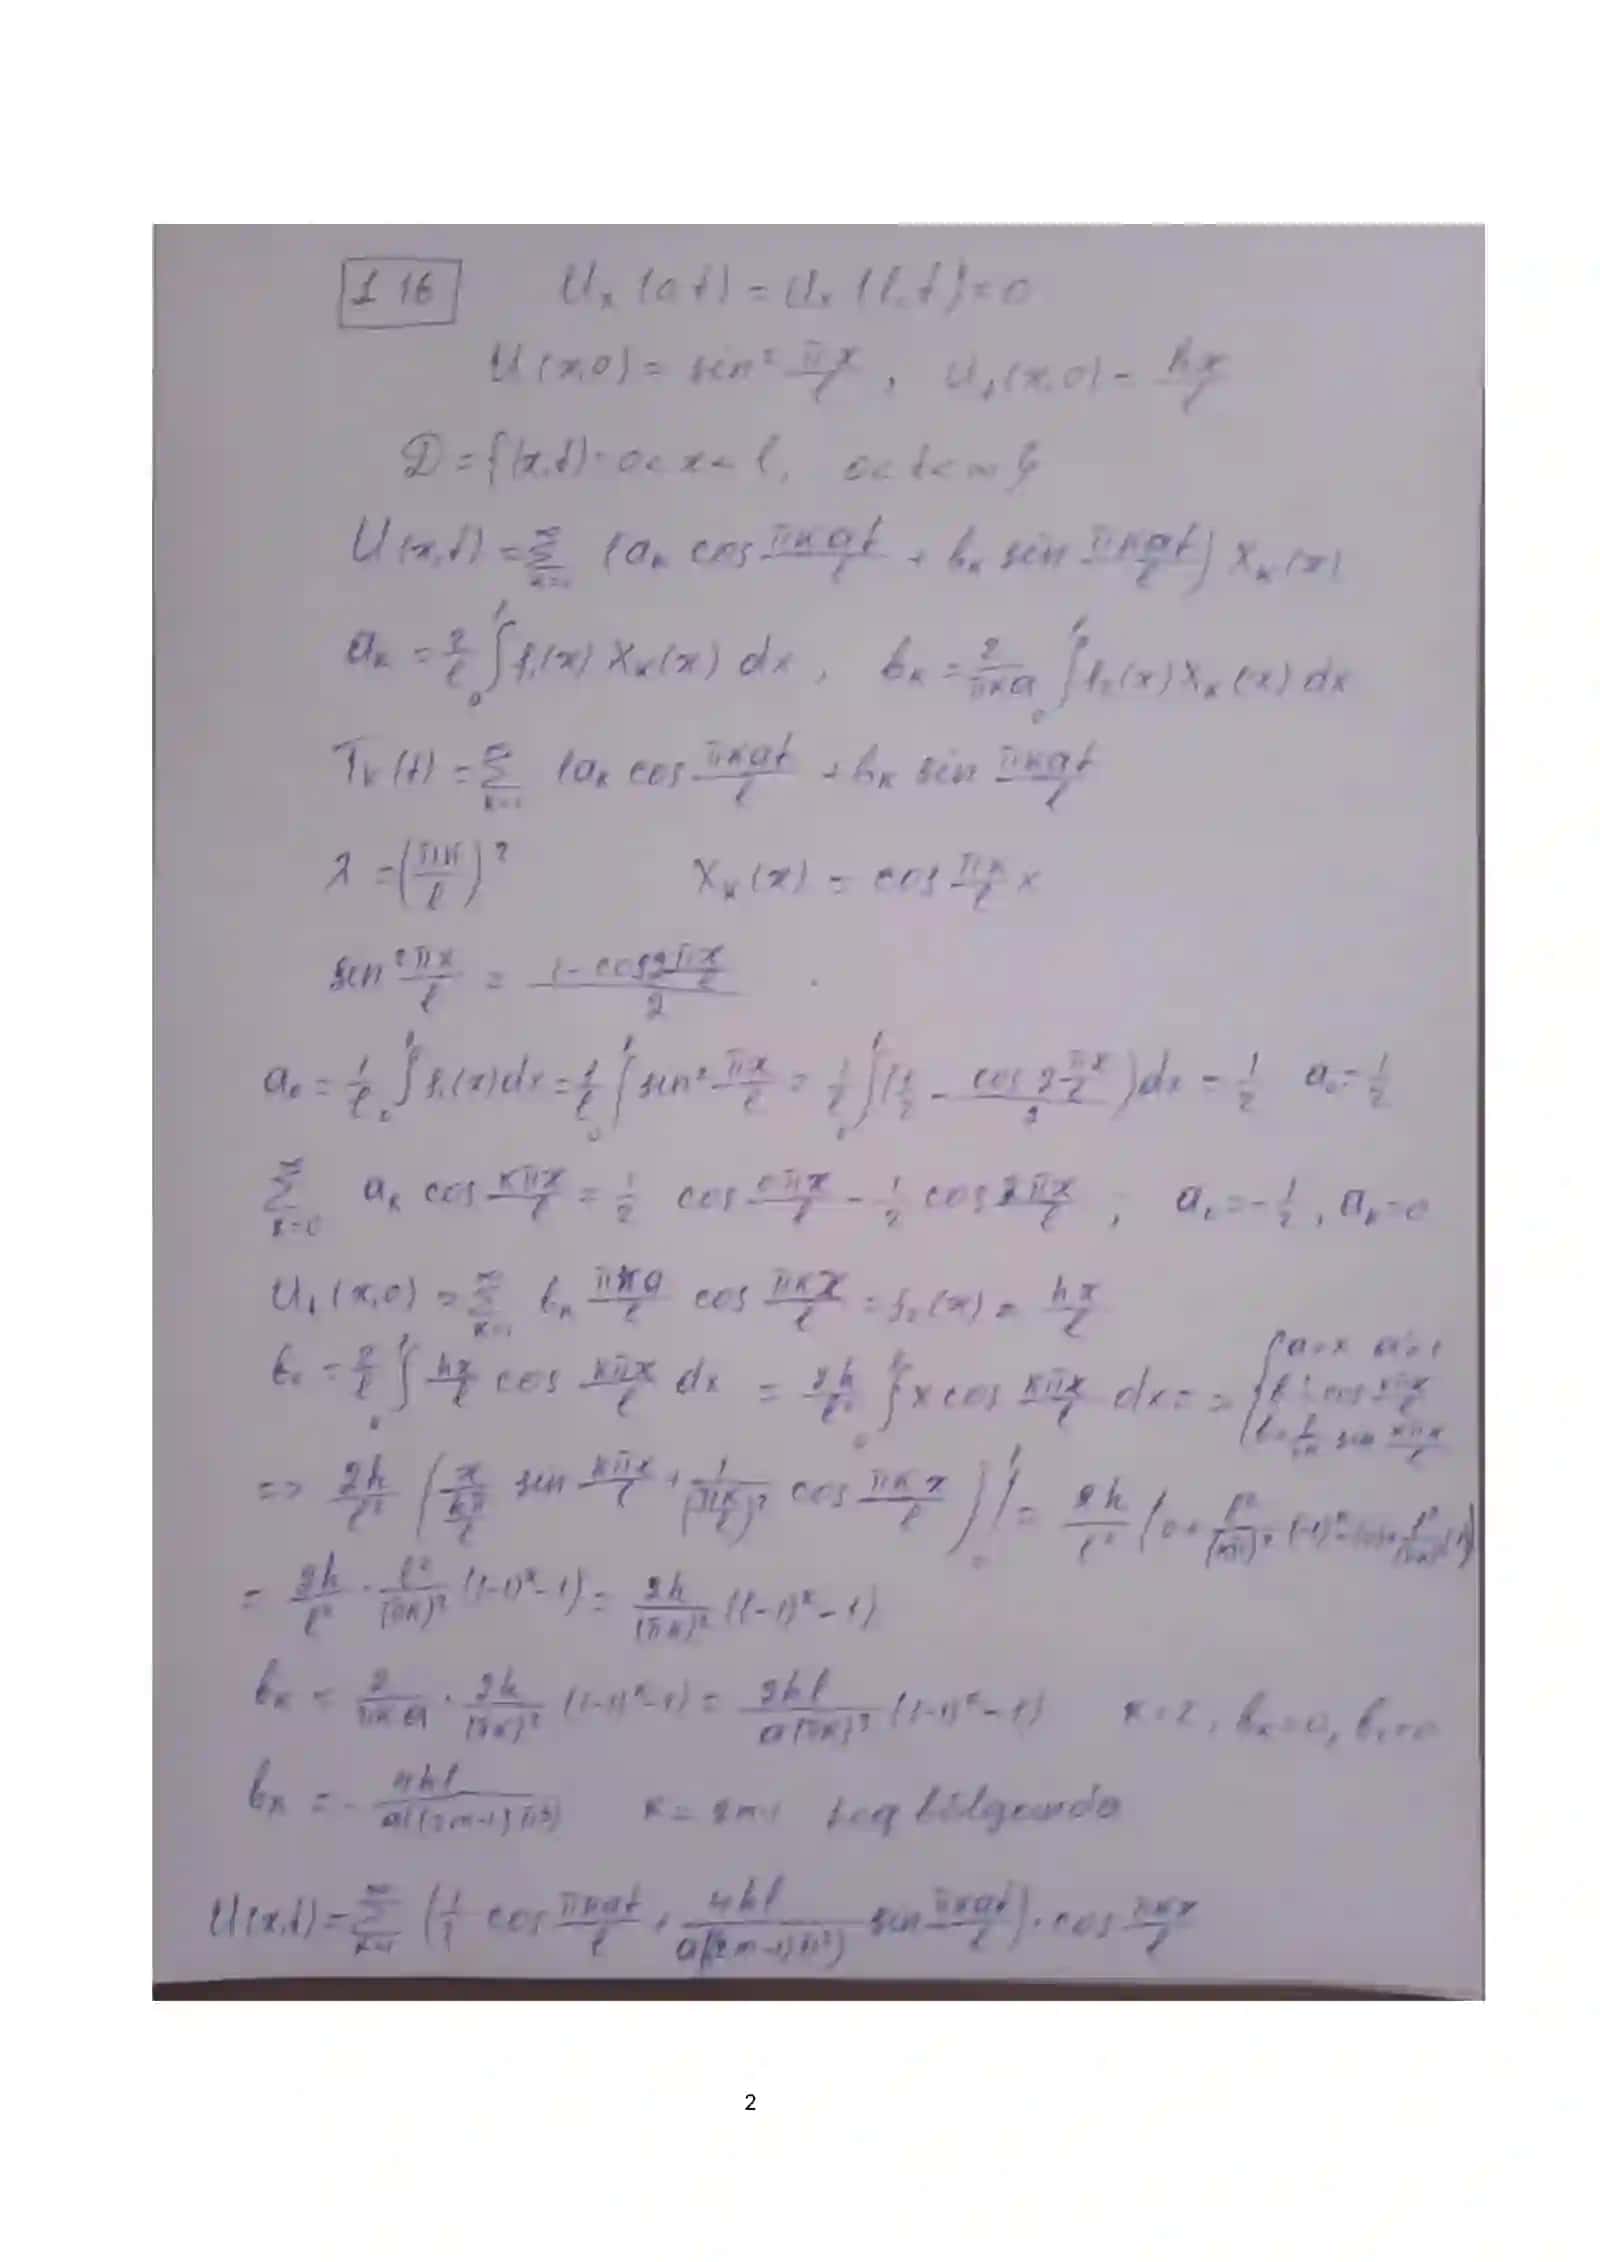 1 16 Uₓ(0,t) = Uₓ(l,t) = 0
U(x,0) = sin² πx/l , Uₜ(x,0) = hx/l
D = {(x,t): 0 < x < l, 0 < t < ∞}
U(x,t) = ∑_{k=1}^∞ (aₖ cos πkat/l + bₖ sin πkat/l) Xₖ(x)
aₖ = 2/l ∫₀ˡ f₁(x) Xₖ(x) dx , bₖ = 2/πka ∫₀ˡ f₂(x) Xₖ(x) dx
Tₖ(t) = ∑_{k=1}^∞ (aₖ cos πkat/l + bₖ sin πkat/l
λ = (πk/l)² Xₖ(x) = cos πk/l x
sin² πx/l = (1 - cos 2πx/l)/2
a₀ = 1/l ∫₀ˡ f₁(x) dx = 1/l ∫₀ˡ sin² πx/l = 1/l ∫₀ˡ (1/2 - (cos 2πx/l)/2) dx = 1/2 a₀ = 1/2
∑_{k=0}^∞ aₖ cos kπx/l = 1/2 cos 0πx/l - 1/2 cos 2πx/l ; a₂ = -1/2 , aₖ = 0
Uₜ(x,0) = ∑_{k=1}^∞ bₖ πka/l cos πkx/l = f₂(x) = hx/l
= 2/l ∫₀ˡ hx/l cos kπx/l dx = 2h/l² ∫₀ˡ x cos kπx/l dx = => { a = x a' = 1
b' = cos kπx/l
b = l/πk sin kπx/l
=> 2h/l² (x/(kπ/l) sin kπx/l + 1/(πk/l)² cos πkx/l)|₀ˡ = 2h/l² (0 + l²/(kπ)² (-1)ᵏ
= 2h/l² · l²/(πk)² ((-1)ᵏ - 1) = 2h/(πk)² ((-1)ᵏ - 1)
bₖ = 2/πka · 2h/(πk)² ((-1)ᵏ - 1) = 2hl/a(πk)³ ((-1)ᵏ - 1) k = 2 , bₖ = 0,
bₖ = - 4hl/a((2m-1)π³) k = 2m-1
U(x,t) = ∑_{k=1}^∞ (1/2 cos πkat/l + 4hl/a((2m-1)π³) sin πkat/l) · cos πkx/l
2